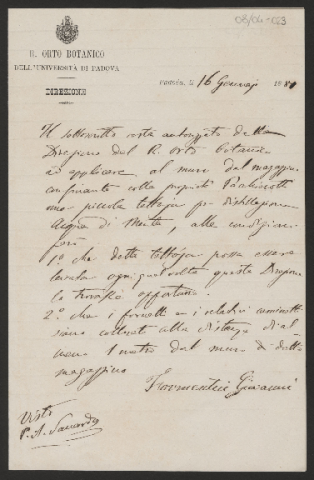 R. ORTO BOTANICO
DELL'UNIVERSITÀ DI PADOVA
DIREZIONE
PADOVA, li 16 Gennajo
Il sottoscritto resta autorizzato dalla
Direzione del R. Orto Botanico
ad applicare al muro del magazzino
confinante colla proprietà
una piccola tettoja per distillazione
Acqua di Menta, alle condizioni
1º che detta tettoja possa essere
levata ogniqualvolta questa Direzione
lo trovasse opportuno.
2º che i fornelli e i relativi
siano collocati alla distanza di al-
meno 1 metro dal muro di detto
magazzino
Giovanni
Visto
P. A. Saccardo